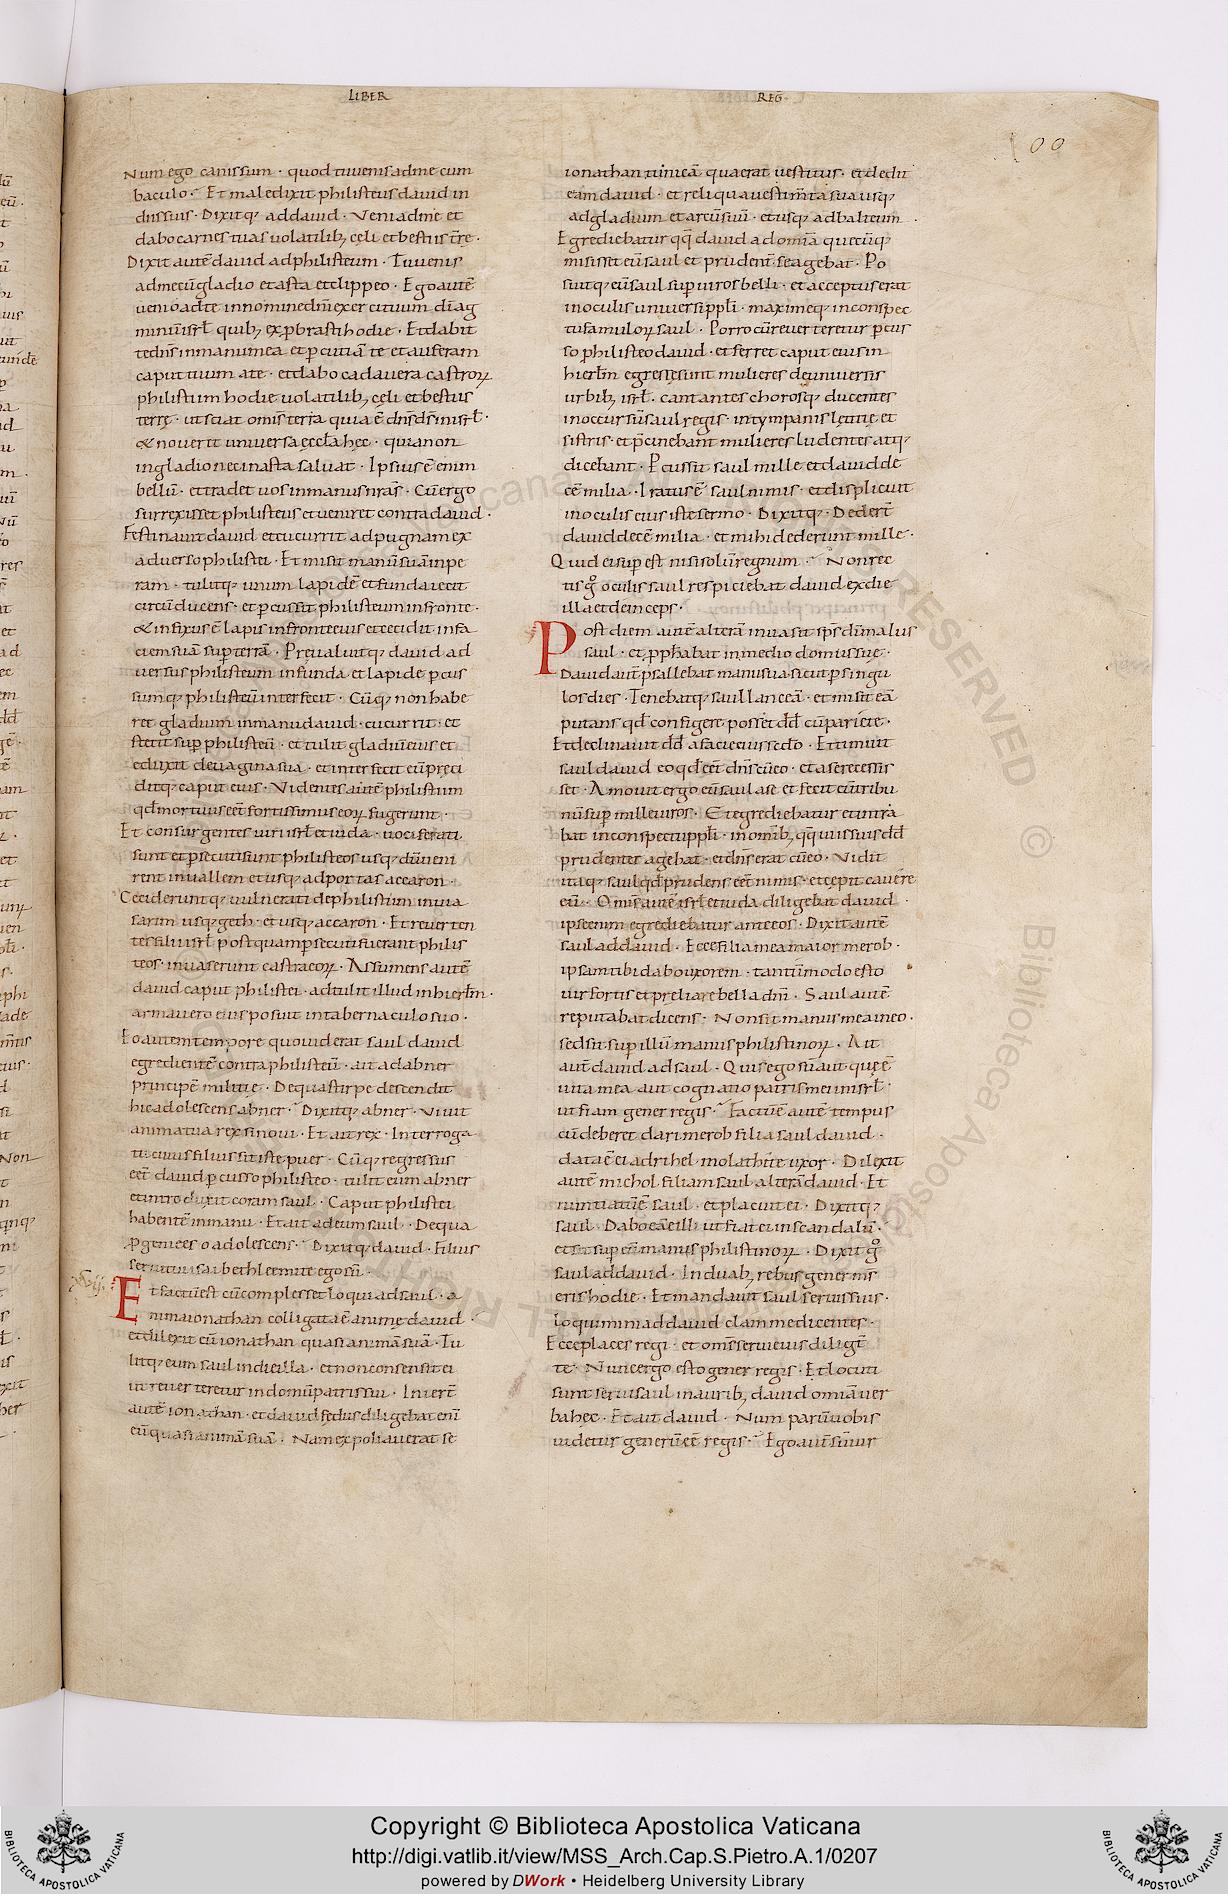 LIBER
REG̅·
100
Num ego canis sum · quod tu uenis ad me cum
baculo · Et maledixit philisteus dauid in
diis suis · Dixitq; ad dauid · Veni ad me et
dabo carnes tuas uolatilib; cęli et bestiis tr̅ę ·
Dixit aute̅ dauid ad philisteum · Tu uenis
ad me cu̅ gladio et asta et clippeo · Ego aute̅
uenio ad te in nomine dn̅i exercituum di̅ ag
miniu̅ isrl̅ quib; exp̱brasti hodie · Et dabit
te dn̅s in manu mea et p̱cutia̅ te et auferam
caput tuum a te · et dabo cadauera castroꝝ
philistium hodie uolatilib; cęli et bestiis
terrę · ut sciat omis̅ terra quia e̅ dn̅s ds̅ in isrl̅ ·
& nouerit uniuersa eccl̅a hęc · quia non
in gladio nec in asta saluat · Ipsius e̅ enim
bellu̅ · et tradet uos in manus nr̅as · Cu̅ ergo
surrexisset philisteus et ueniret contra dauid ·
Festinauit dauid et cucurrit ad pugnam ex
aduerso philistei · Et misit manu̅ sua̅ in pe
ram · tulitq; unum lapide̅ et funda iecit
circu̅ducens · et p̱cussit philisteum in fronte ·
& infixus e̅ lapis in fronte eius et cecidit in fa
ciem sua̅ sup̱ terra̅ · Pręualuitq; dauid ad
uersus philisteum in funda et lapide p̱cus
sumq; philisteu̅ interfecit · Cu̅q; non habe
ret gladium in manu dauid · cucurrit · et
stetit sup̱ philisteu̅ · et tulit gladiu̅ eius et
eduxit de uagina sua · et interfecit eu̅ pręci
ditq; caput eius · Videntes aute̅ philistium
qd̅ mortuus eet̅ fortissimus eoꝝ fugerunt ·
Et consurgentes uiri isrl̅ et iuda · uociferati
sunt et p̱secuti sunt philisteos usq; du̅ ueni
rent in uallem et usq; ad portas accaron ·
Ceciderunt q; uulnerati de philistium in uia
sarim usq; geth · et usq; accaron · Et reuerten
tes filii isrl̅ postquam p̱secuti fuerant philis
teos · inuaserunt castra eoꝝ · Assumens aute̅
dauid caput philistei · adtulit illud in hierl̅m ·
arma uero eius posuit in tabernaculo suo ·
Eo autem tempore quo uiderat saul dauid
egrediente̅ contra philisteu̅ · ait ad abner
principe̅ militię · De qua stirpe descendit
hic adolescens abner · Dixitq; abner · Viuit
anima tua rex si noui · Et ait rex · Interroga
tu cuius filius sit iste puer · Cu̅q; regressus
eet̅ dauid p̱cusso philisteo · tulit eum abner
et introduxit coram saul · Caput philistei
habente̅ in manu · Et ait ad eum saul · De qua
p̱genie es o adolescens · Dixitq; dauid · Filius
serui tui isai bethleemitę ego su̅ ·
Et factu̅ est cu̅ complesset loqui ad saul · a
nima ionathan colligata e̅ animę dauid ·
et dilexit eu̅ ionathan quasi anima̅ sua̅ · Tu
litq; eum saul in die illa · et non consensit ei
ut reuerteretur in domu̅ patris sui · Iniert̅
aute̅ ionathan · et dauid fędus diligebat eni̅
eu̅ quasi anima̅ sua̅ · Nam expoliauerat se
ionathan tunica̅ qua erat uestitus · et dedit
eam dauid · et reliqua uestim̅ta sua usq;
ad gladium et arcu̅ suu̅ · et usq; ad balteum ·
Egrediebatur qq̅ dauid ad omi̅a quecu̅q;
misisset eu̅ saul et prudent̅ se agebat · Po
suitq; eu̅ saul sup̱ uiros belli · et acceptus erat
in oculis uniuersi ppl̅i · maximeq; in conspec
tu famuloꝝ saul · Porro cu̅ reuerteretur p̱cus
so philisteo dauid · et ferret caput eius in
hierl̅m egressę sunt mulieres de uniuersis
urbib; isrl̅ · cantantes chorosq; ducentes
in occursu̅ saul regis · in tympanis lętitię et
sistris · et p̱cinebant mulieres ludentes atq;
dicebant · P̱cussit saul mille et dauid de
ce̅ milia · Iratus e̅ saul nimis · et displicuit
in oculis eius iste sermo · Dixitq; · Dedert̅
dauid dece̅ milia · et mihi dederunt mille ·
Quid ei sup̱est nisi solu̅ regnum · Non rec
tis g̊ oculis saul respiciebat dauid ex die
illa et deinceps ·
Post diem aute̅ altera̅ inuasit sps̅ di̅ malus
saul · et p̱ph̅abat in medio domus suę ·
Dauid aut̅ psallebat manu sua sicut p̱ singu
los dies · Tenebatq; saul lancea̅ · et misit ea̅
putans qd̅ configere posset dd̅ cu̅ pariete ·
Et declinauit dd̅ a facie eius sec̅do · Et timuit
saul dauid eo qd̅ eet̅ dn̅s cu̅ eo · et a se recessis
set · Amouit ergo eu̅ saul a se et fecit eu̅ tribu
nu̅ sup̱ mille uiros · Et egrediebatur et intra
bat in conspectu ppl̅i · in omib̅; qq̅ uiis suis dd̅
prudenter agebat · et dn̅s erat cu̅ eo · Vidit
itaq; saul qd̅ prudens eet̅ nimis · et cępit cauere
eu̅ · Omis̅ aute̅ isrl̅ et iuda diligebat dauid ·
ipse enim egrediebatur ante eos · Dixit aute̅
saul ad dauid · Ecce filia mea maior merob ·
ipsam tibi dabo uxorem · tantu̅modo esto
uir fortis et pręliare bella dni̅ · Saul aute̅
reputabat dicens · Non sit manus mea in eo ·
sed sit sup̱ illu̅ manus philistinoꝝ · Ait
aut̅ dauid ad saul · Quis ego su̅ aut quę e̅
uita mea aut cognatio patris mei in isrl̅ ·
ut fiam gener regis · Factu̅ e̅ aute̅ tempus
cu̅ deberet dari merob filia saul dauid ·
data e̅ ei adrihel molathitę uxor · Dilexit
aute̅ michol filiam saul altera̅ dauid · Et
nuntiatu̅ e̅ saul · et placuit ei · Dixitq;
saul · Dabo ea̅ illi ut fiat ei in scandalu̅ ·
et sit sup̱ eu̅ manus philistinoꝝ · Dixit g̊
saul ad dauid · In duab; rebus gener ms̅
eris hodie · Et mandauit saul seruis suis ·
loquimini ad dauid clam me dicentes ·
Ecce places regi · et oms̅ serui eius diligt̅
te · Nunc ergo esto gener regis · Et locuti
sunt serui saul in aurib; dauid omi̅a uer
ba hęc · Et ait dauid · Num paru̅ uobis
uidetur generu̅ ee̅ regis · Ego aut̅ su̅ uir
Copyright © Biblioteca Apostolica Vaticana
http://digi.vatlib.it/view/MSS_Arch.Cap.S.Pietro.A.1/0207
powered by DWork • Heidelberg University Library
BIBLIOTECA APOSTOLICA VATICANA
BIBLIOTECA APOSTOLICA VATICANA